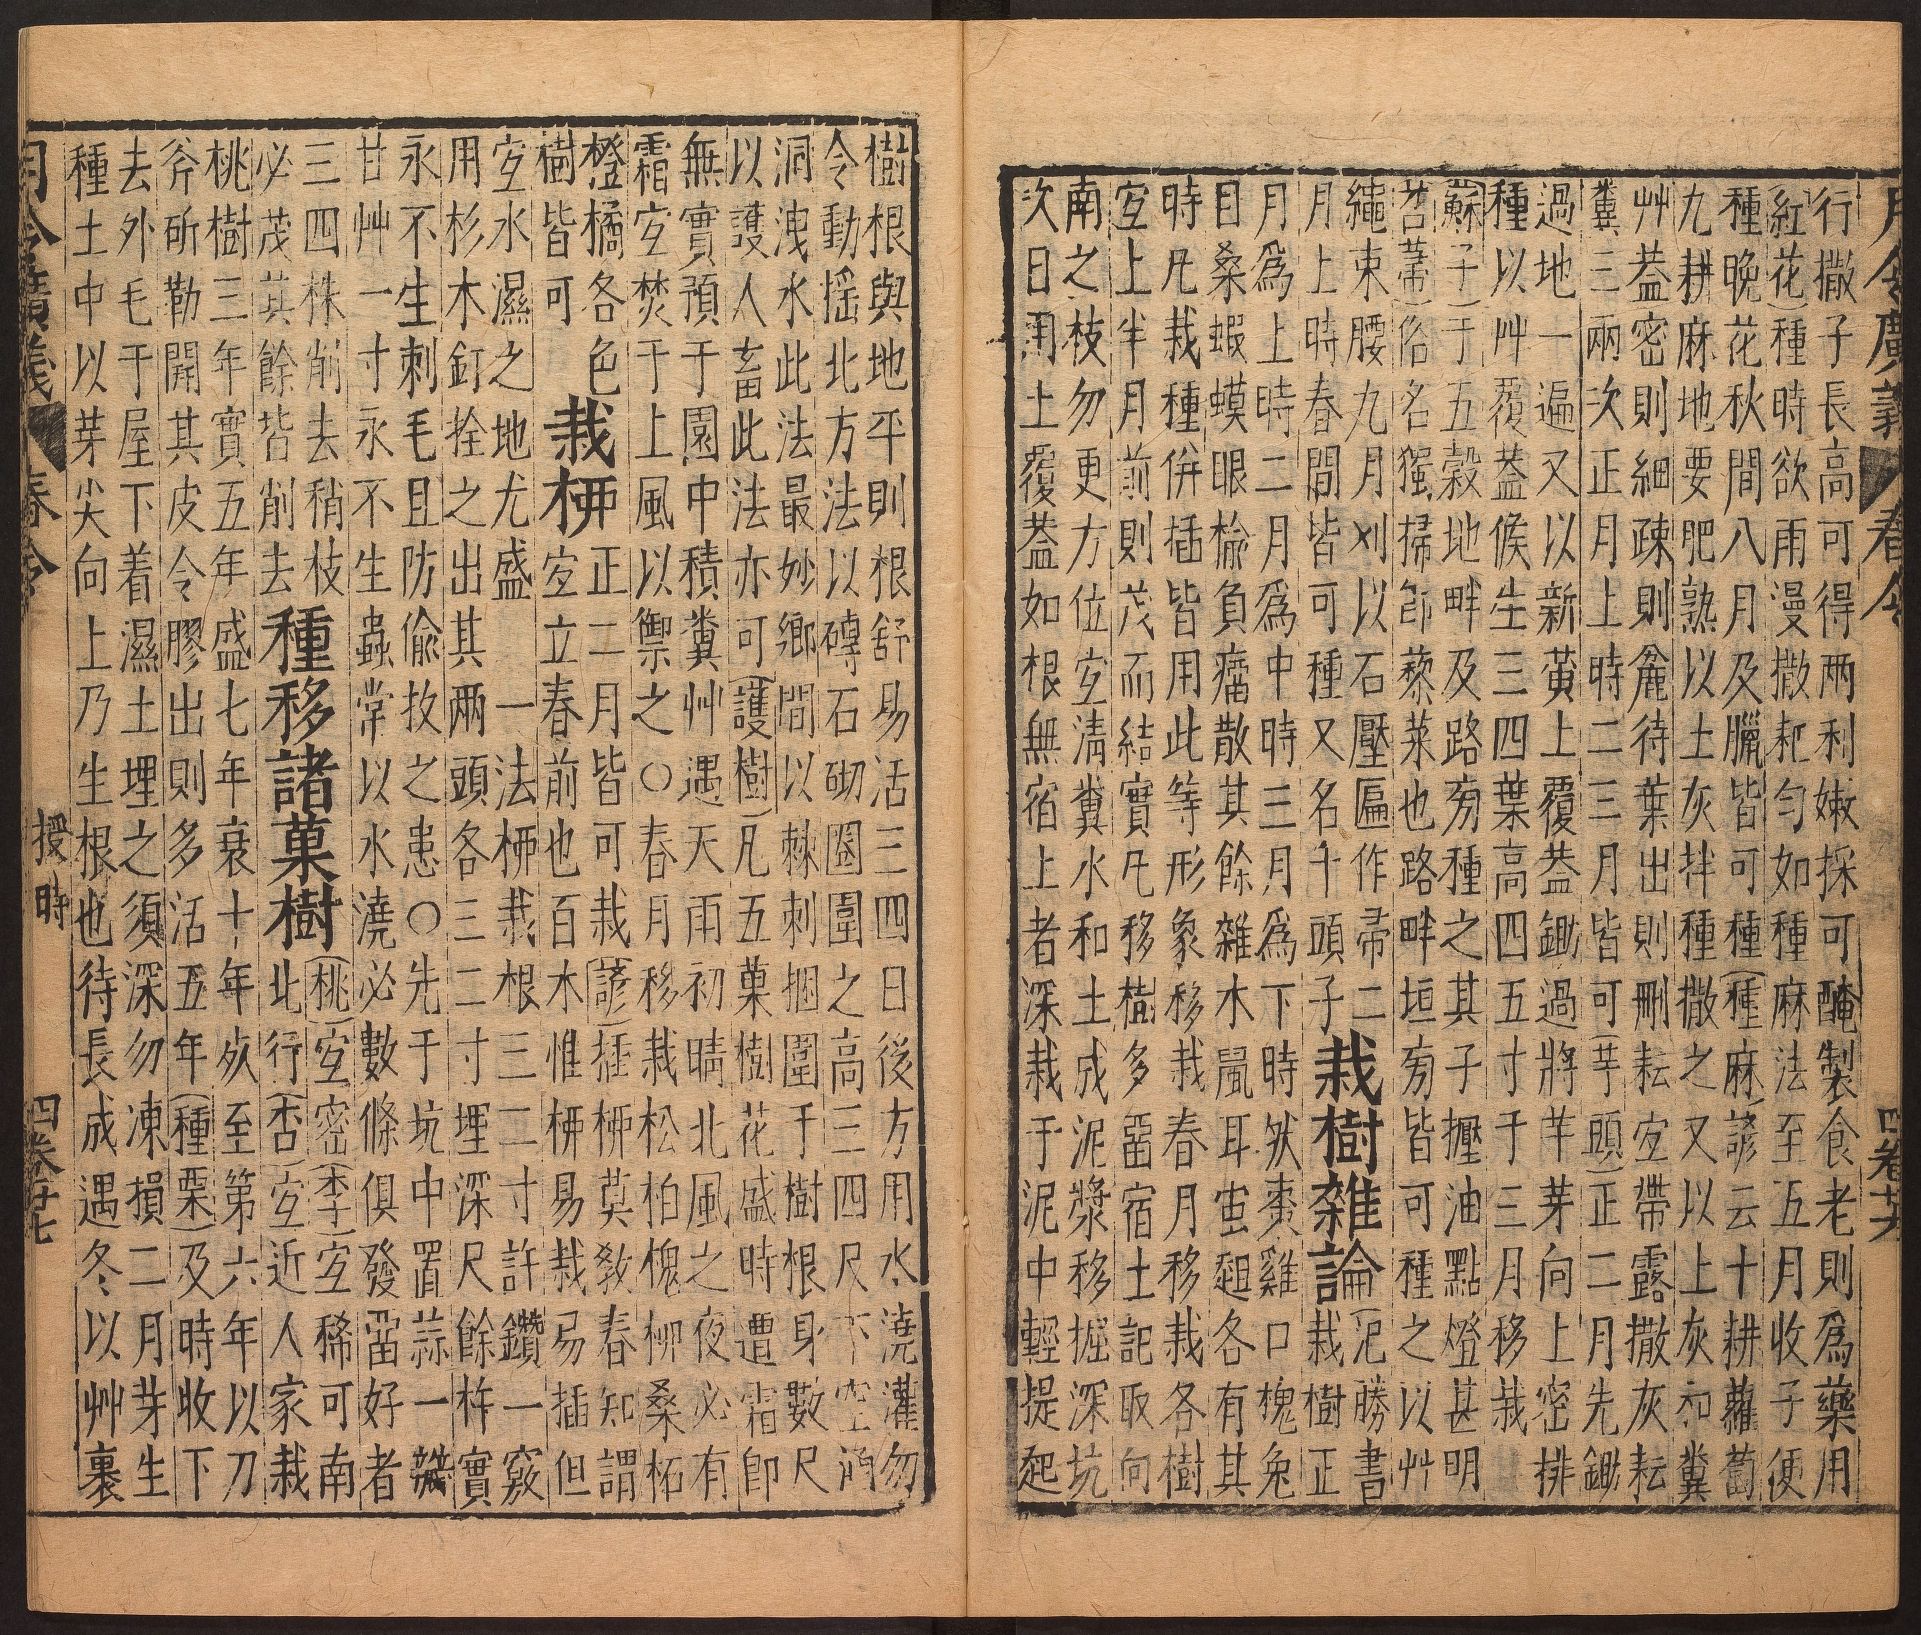 月令廣義 春令 四卷 廿六
行撒子長高可得兩利嫩採可醃製食老則爲藥用
紅花種時欲雨漫撒耙勻如種麻法至五月收子便
種晚花秋間八月及臘皆可種種麻諺云十耕蘿蔔
九耕麻地要肥熟以土灰拌種撒之又以上灰和糞
艸蓋密則細疎則麄待葉出則刪耘宐帶露撒灰耘
糞三兩次正月上時二三月皆可芋頭正二月先鋤
過地一遍又以新黃上覆蓋鋤過將芋芽向上密排
種以艸覆蓋候生三四葉高四五寸于三月移栽
蘇子于五穀地畔及路旁種之其子壓油點燈甚明
苕藋俗名獨掃卽藜菜也路畔垣旁皆可種之以艸
繩束腰九月刈以石壓匾作帚二
月上時春間皆可種又名千頭子
栽樹雜論
氾勝書栽樹正
月爲上時二月爲中時三月爲下時然棗雞口槐兔
目桑蝦蟆眼榆負瘤散其餘雜木鼠耳䖟翅各有其
時凡栽種併插皆用此等形象移栽春月移栽各樹
宐上半月前則茂而結實凡移樹多畱宿土記取向
南之枝勿更方位宐清糞水和土成泥漿移掘深坑
次日用土覆蓋如根無宿上者深栽于泥中輕提起
樹根與地平則根舒易活三四日後方用水澆灌勿
令動搖北方法以磚石砌圈圍之高三四尺下空
洞洩水此法最妙鄉間以棘刺捆圍于樹根身數尺
以護人畜此法亦可護樹凡五菓樹花盛時遭霜卽
無實預于園中積糞艸遇天雨初晴北風之夜必有
霜宐焚于上風以禦之○春月移栽松柏槐柳桑柘
橙橘各色
樹皆可
栽柳
正二月皆可栽諺插柳莫教春知謂
宐立春前也百木惟柳易栽易插但
宐水濕之地尤盛 一法柳栽根三二寸許鑽一竅
用杉木釘拴之出其兩頭各三二寸埋深尺餘杵實
永不生刺毛且防偷拔之患○先于坑中置蒜一瓣
甘艸一寸永不生蟲常以水澆必數條俱發畱好者
三四株削去稍枝
必茂其餘皆削去
種移諸菓樹
桃宐密李宐稀可南
北行杏宐近人家栽
桃樹三年實五年盛七年衰十年死至第六年以刀
斧斫勒開其皮令膠出則多活五年種栗及時收下
去外毛于屋下着濕土埋之須深勿凍損二月芽生
種土中以芽尖向上乃生根也待長成遇冬以艸裹
月令廣義 春令 授時 四卷 廿七